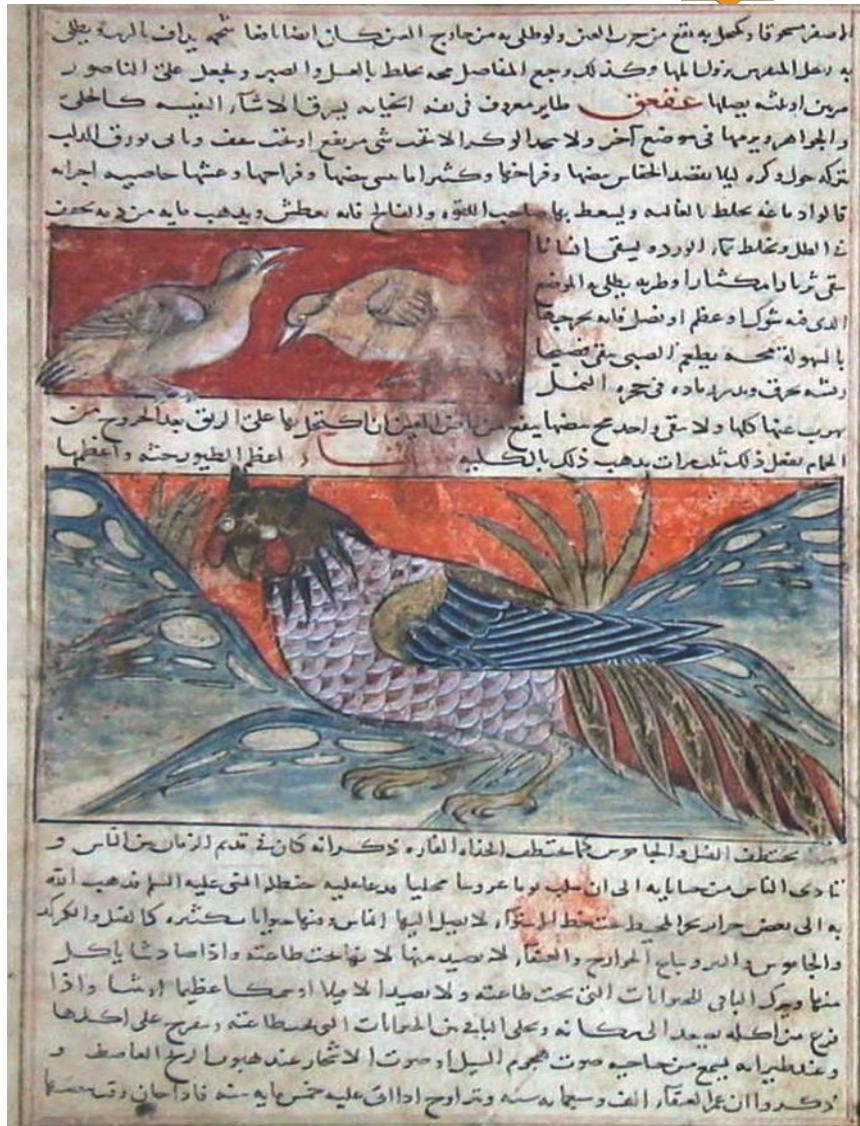 مسحوقا وكحل به نفع من جرب العين ولو طلى به من خارج العين كان ايضا نافعا شحمه يداف بالزيت ويطلى
به رجل المنقرس يزول المها وكذلك وجع المفاصل مخه يخلط بالعسل والصبر ويجعل على الناصور
مرتين او ثلثه يصلها عقعق طاير معروف فى نفسه الخيانه يسرق الاشيآء النفيسه كالحلى
والجواهر ويرمها فى موضع آخر ولا يتخذ الوكر الا تحت شى مرتفع او تحت سقف وياتى بورق الدلب
يتركه حول وكره ليلا يقصد الخفاش بيضها وفراخها وكثيرا ما ينسى بيضها وفراخها وعشها خاصيه اجزائه
قالوا دماغه يخلط بالغاليه ويسعط بها صاحب اللقوه والفالج فانه يعطش ويذهب مابه من دمه يجفف
فى الظل ويخلط بماء الورد ويسقى انسانا
يبقى ثرثارا مكثارا وطريه يطلى به الموضع
الذى فيه شوك او عظم او نصل فانه يخرجها
بالسهولة مخه يطعم الصبى يبقى فصيحا
ريشه يحرق ويذر رماده فى حجره النمل
يهرب عنها كلها ولا يبقى واحد مح بيضها ينفع من بياض العين ان اكتحل بها على الريق بعد الخروج من
الحمام يفعل ذلك ثلث مرات يذهب ذلك بالكليه اعظم الطيور جثه واعظمها
يختطف الفيل والجاموس كما يختطف الحداه الفاره ذكر انه كان فى قديم الزمان بين الناس و
تاذى الناس من جناياته الى ان سلب يوما عروسا محليا فدعا عليه حنظله النبى عليه السلم فذهب الله
به الى بعض جزاير بحر المحيط تحت خط الاستوآء لا يصل اليها الناس وفيها حيوانات كثيره كالفيل والكركد
والجاموس والببر وسباع الجوارح والعنقآء لا يصيد منها لانها تحت طاعته واذا صاد شيا ياكل
منها ويترك الباقى للحيوانات التى تحت طاعته ولا يصيد الا فيلا او سمكا عظيما او تنينا واذا
فرغ من اكله يصعد الى مكانه ويخلى الباقى من الحيوانات التى تحت طاعته ويتفرج على اكلها
وعند طيرانه يسمع من جناحيه صوت هجوم السيل او صوت الاشجار عند هبوب الريح العاصف و
ذكروا ان عمر العنقآء الف وسبعمايه سنه ويتزاوج اذا اتى عليه خمس مايه سنه فاذا حان وقت بيضها